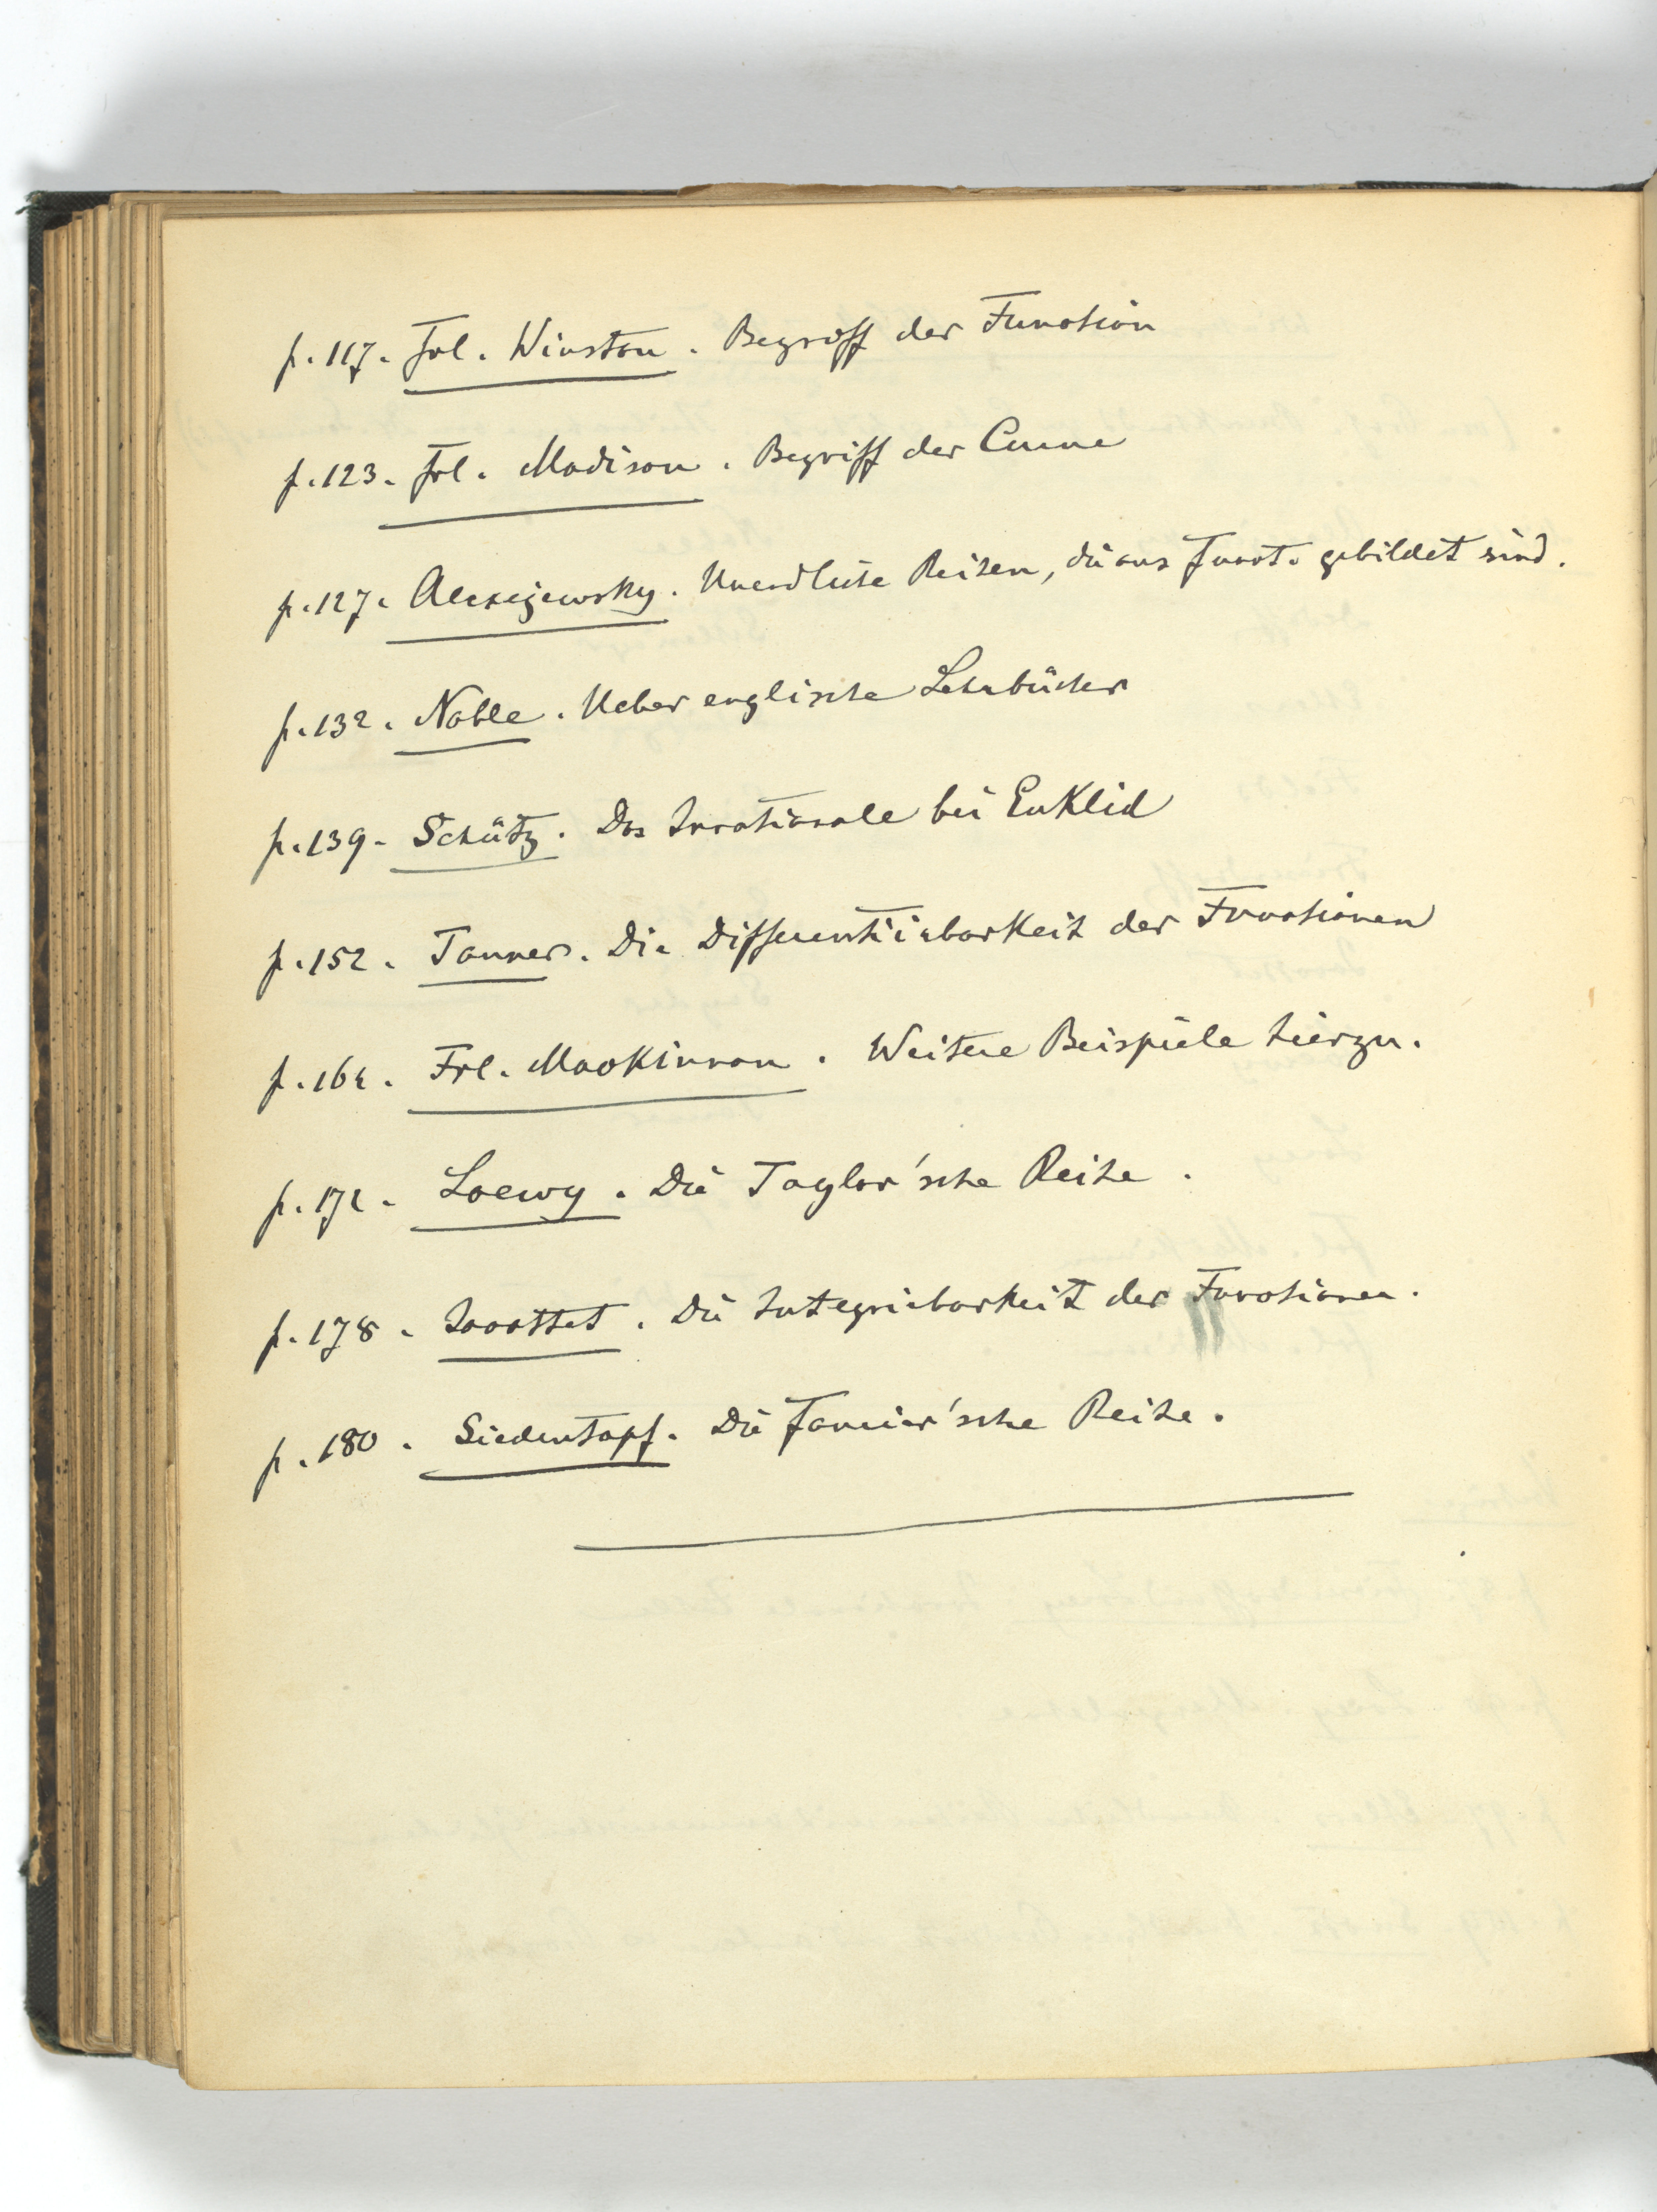 p. 117. Frl. Winston. Begriff der Function
p. 123. Frl. Madison. Begriff der Curve
p. 127. Alexejewsky. Unendliche Reihen, die aus Funct. gebildet sind.
p. 132. Noble. Ueber englische Lehrbücher
p. 139. Schütz. Das Irrationale bei Euklid
p. 152. Tanner. Die Differentiirbarkeit der Functionen
p. 162. Frl. Mackinnon. Weitere Beispiele hierzu.
p. 172. Loewy. Die Taylor'sche Reihe.
p. 178. Die Integrirbarkeit der Functionen.
p. 180. Siedentopf. Die Fourier'sche Reihe.